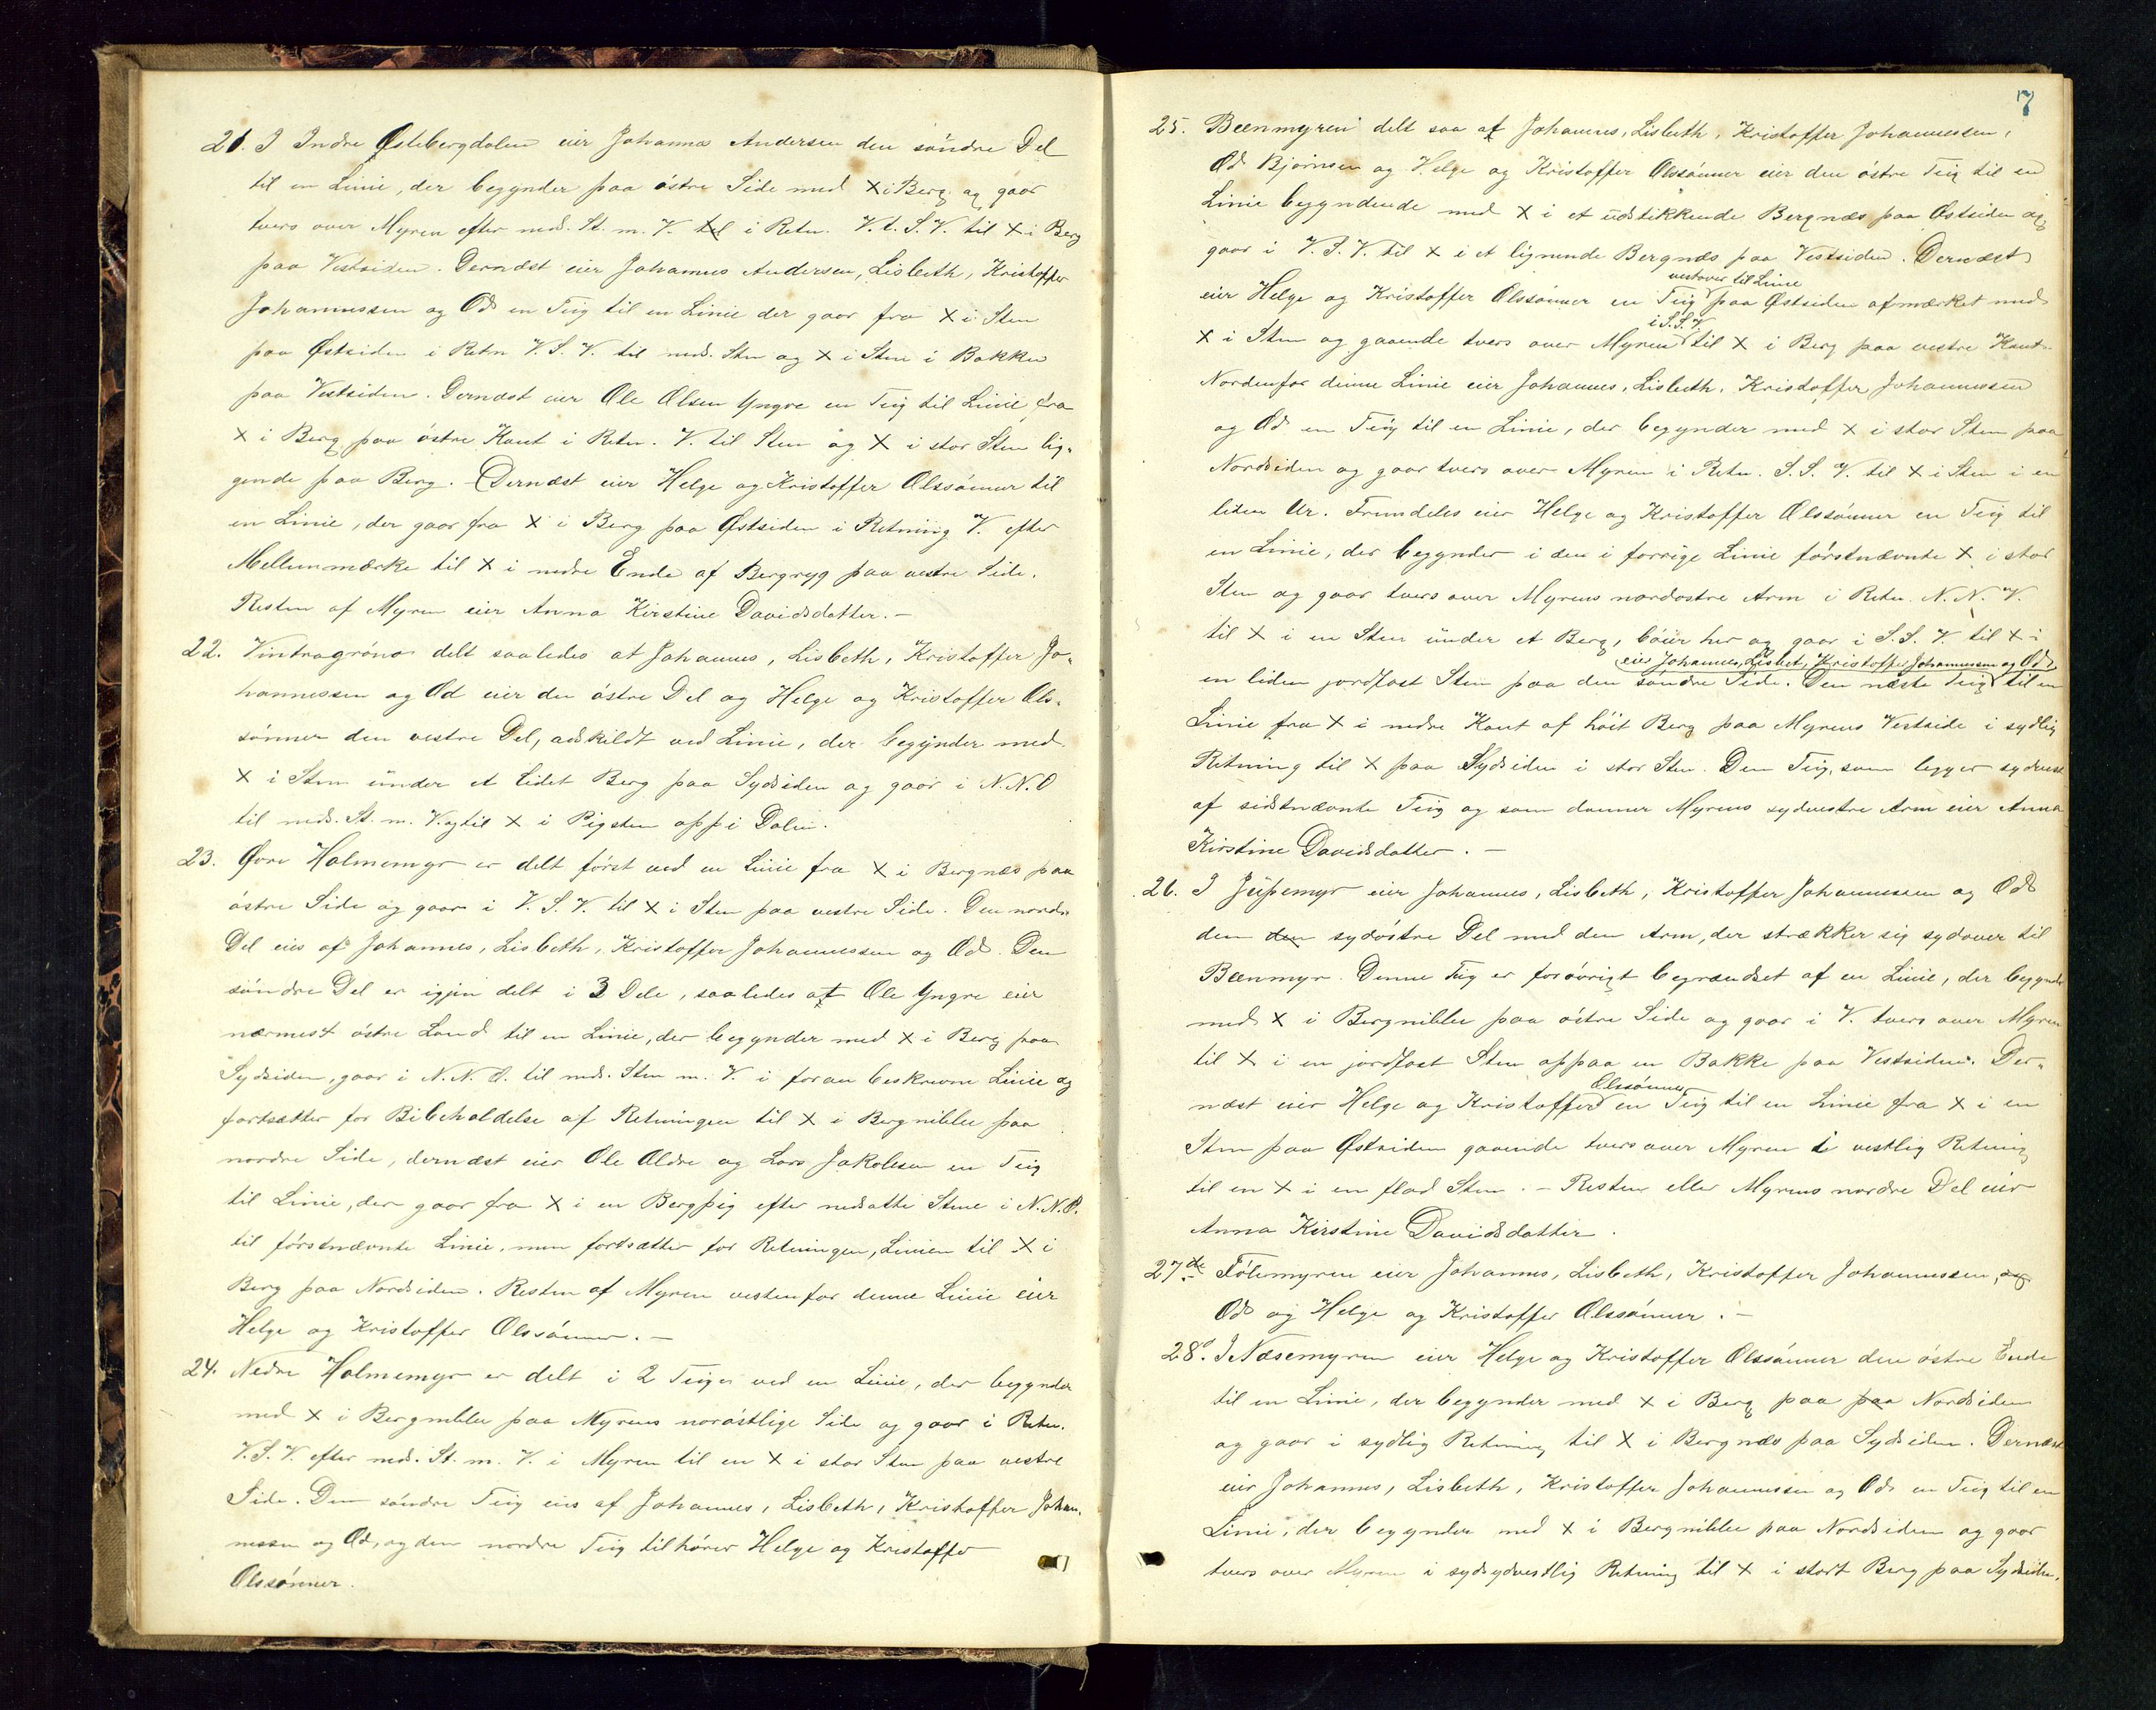 21. I Indre Østebergdalen eier Johannes Andersen den söndre Del
til en Linie, der begynder paa östre Side med X i Berg og gaar
tvers over Myren efter neds. St. m. V. til i Retn. V.t.S.V. til X i Berg
paa Vestsiden. Dernæst eier Johannes Andersen, Lisbeth, Kristoffer
Johannessen og Od en Teig til en Linie der gaar fra X i Sten
paa Østsiden i Retn V.S.V. til neds. Sten og X i Sten i Bakken
paa Vestsiden. Dernæst eier Ole Olsen Yngre en Teig til Linie fra
X i Berg paa östre Kant i Retn. V. til Sten og X i stor Sten lig-
gende paa Berg. Dernæst eier Helge og Kristoffer Olssönner til
en Linie, der gaar fra X i Berg paa Østsiden i Retning V. efter
Mellemmærke til X i nedre Ende af Bergryg paa vestre Side.
Resten af Myren eier Anna Kirstine Davidsdatter. —
22. Vintragröna delt saaledes at Johannes, Lisbeth, Kristoffer Jo-
hannessen og Od eier den östre Del og Helge og Kristoffer Ols-
sönner den vestre Del, adskildt ved Linie, der begynder med
X i Sten under et lidet Berg paa Sydsiden og gaar i N.N.O
til neds. St. m. V. og til X i Pigsten opp i Dalen.
23. Øvre Holmemyr er delt först ved en Linie fra X i Bergnæs paa
östre Side og gaar i V.S.V. til X i Sten paa vestre Side. Den nordre
Del eies af Johannes, Lisbeth, Kristoffer Johannessen og Od. Den
söndre Del er igjen delt i 3 Dele, saaledes at Ole Yngre eier
nærmest östre Land til en Linie, der begynder med X i Berg paa
Sydsiden, gaar i N.N.O. til neds. Sten m. V. i foran beskrevne Linie og
fortsætter for Bibeholdelse af Retningen til X i Bergnibbe paa
nordre Side, dernæst eier Ole Aldre og Lars Jakobsen en Teig
til Linie, der gaar fra X i en Bergpig efter nedsatte Stene i N.N.O.
til förstnævnte Linie, men fortsætter for Retningen, Linien til X i
Berg paa Nordsiden. Resten af Myren vestenfor denne Linie eier
Helge og Kristoffer Olssönner. —
24. Nedre Holmemyr er delt i 2 Teiger ved en Linie, der begynder
med X i Bergnibbe paa Myrens noröstlige Side og gaar i Retn.
V.S.V. efter neds. St. m. V. i Myren til en X i stor Sten paa vestre
Side. Den söndre Teig eies af Johannes, Lisbeth, Kristoffer Johan-
nessen og Od, og den nordre Teig tilhörer Helge og Kristoffer
Olssönner.
7
25. Beenmyren delt saa at Johannes, Lisbeth, Kristoffer Johannessen,
Od Bjørnsen og Helge og Kristoffer Olssönner eier den östre Teig til en
Linie begyndende med X i et udstikkende Bergnæs paa Østsiden og
gaar i V.S.V. til X i et lignende Bergnæs paa Vestsiden. Dernæst
vestover til Linie
eier Helge og Kristoffer Olssönner en Teig paa Østsiden afmærket med
i S.S.V.
X i Sten og gaaende tvers over Myren til X i Berg paa vestre Kant.
Nordenfor denne Linie eier Johannes, Lisbeth, Kristoffer Johannessen
og Od en Teig til en Linie, der begynder med X i stor Sten paa
Nordsiden og gaar tvers over Myren i Retn. S.S.V. til X i Sten i en
liden Ur. Fremdeles eier Helge og Kristoffer Olssönner en Teig til
en Linie, der begynder i den i forrige Linie förstnævnte X i stor
Sten og gaar tvers over Myrens nordostre Arm i Retn. N.N.V.
til X i en Sten under et Berg, böier her og gaar i S.S.V. til X i
eier Johannes, Lisbet, Kristoffer Johannessen og Od
en liden jordfast Sten paa den söndre Side. Den næste Teig til en
Linie fra X i nedre Kant af höit Berg paa Myrens Vestside i sydlig
Retning til X paa Sydsiden i stor Sten. Den Teig, som ligger sydvest
af sidstnævnte Teig og som danner Myrens sydvestre Arm eier Anna
Kirstine Davidsdatter. —
26. I Jupemyr eier Johannes, Lisbeth, Kristoffer Johannessen og Od
den den sydöstre Del med den Arm, der strækker sig sydover til
Beenmyr. Denne Teig er forövrigt begrændset af en Linie, der begynder
med X i Bergnibbe paa östre Side og gaar i V. tvers over Myren
til X i en jordfast Sten oppaa en Bakke paa Vestsiden. Der-
Olssönner
næst eier Helge og Kristoffer en Teig til en Linie fra X i en
Sten paa Østsiden gaaende tvers over Myren i vestlig Retning
til en X i en flad Sten. — Resten eller Myrens nordre Del eier
Anna Kirstine Davidsdatter.
27de Fölemyren eier Johannes, Lisbeth, Kristoffer Johannessen, og
Od og Helge og Kristoffer Olssönner. —
28. I Næsemyren eier Helge og Kristoffer Olssönner den östre Ende
til en Linie, der begynder med X i Berg paa paa Nordsiden
og gaar i sydlig Retning til X i Bergnæs paa Sydsiden. Dernæst
eier Johannes, Lisbeth, Kristoffer Johannessen og Od en Teig til en
Linie, der begynder med X i Bergnibbe paa Nordsiden og gaar
tvers over Myren i sydsydvestlig Retning til X i stort Berg paa Sydsiden.